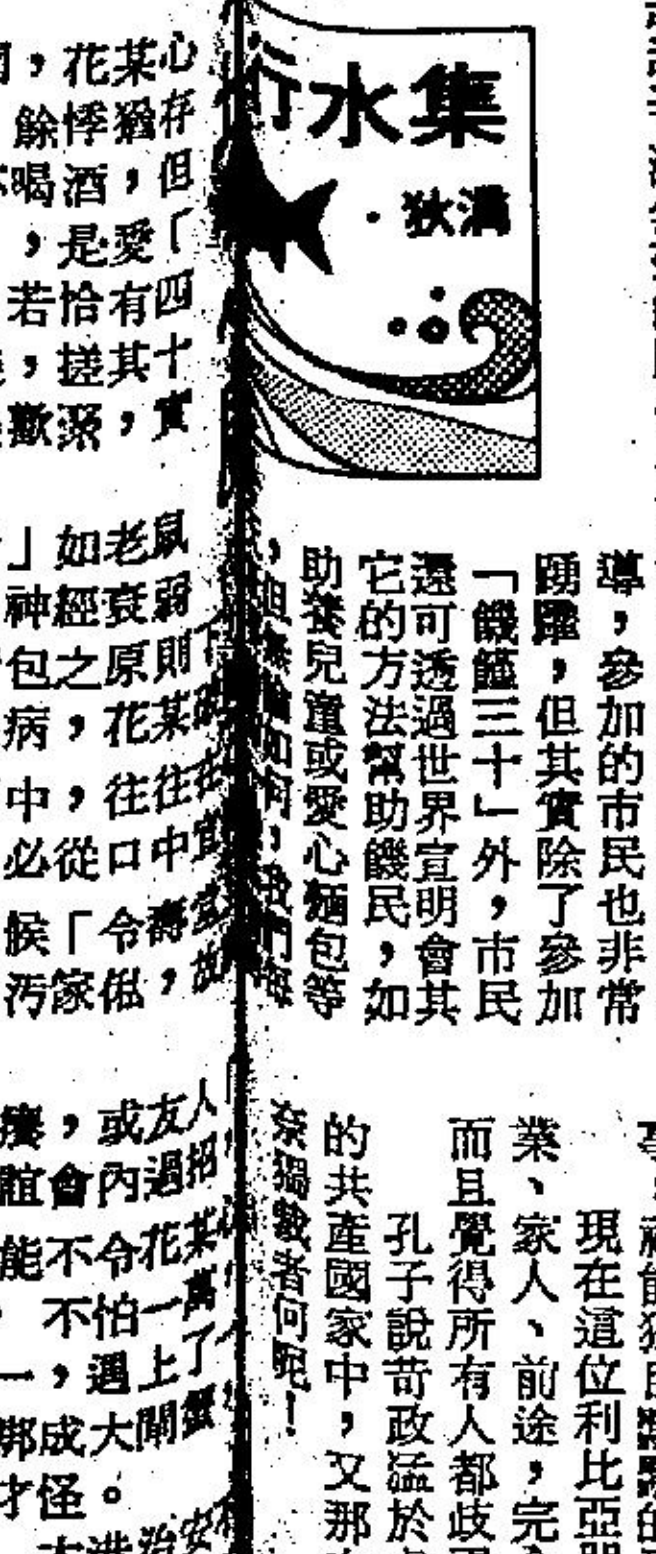 ，花某心
餘悸猶存
喝酒，但
，是愛「
若恰有四
，搓其十
歡　，實
」如老鼠
神經衰弱
包之原則
病，花某
中，往往在
必從口中
候「令壽堂
污家俬，故
癢，或友人
誼會內過招
能不令花某
不怕一萬
一，遇上了
綁成大閘蟹
才怪。
行水集
・狄滿
導，參加的市民也非常
踴躍，但其實除了參加
「饑饉三十」外，市民
還可透過世界宣明會其
它的方法幫助饑民，如
助養兒童或愛心麵包等
，但無論如何，我們每
現在這位利比亞
業、家人、前途，完
而且覺得所有人都歧
孔子說苛政猛於
的共產國家中，又那
奈獨裁者何呢！